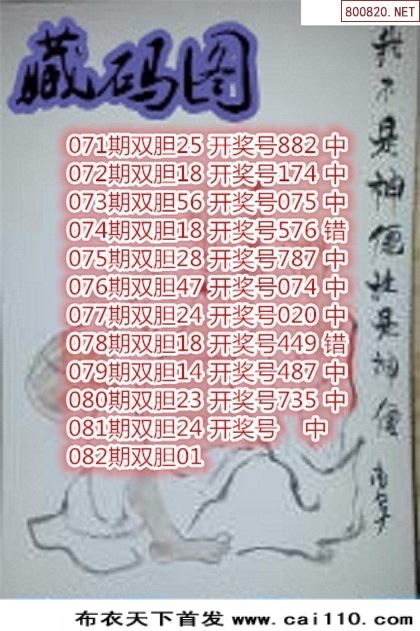 800820.NET
藏码图
071期双胆25 开奖号882 中
072期双胆18 开奖号174 中
073期双胆56 开奖号075 中
074期双胆18 开奖号576 错
075期双胆28 开奖号787 中
076期双胆47 开奖号074 中
077期双胆24 开奖号020 中
078期双胆18 开奖号449 错
079期双胆14 开奖号487 中
080期双胆23 开奖号735 中
081期双胆24 开奖号 中
082期双胆01
我不是神僊就是神僊
布衣天下首发 www.cai110.com